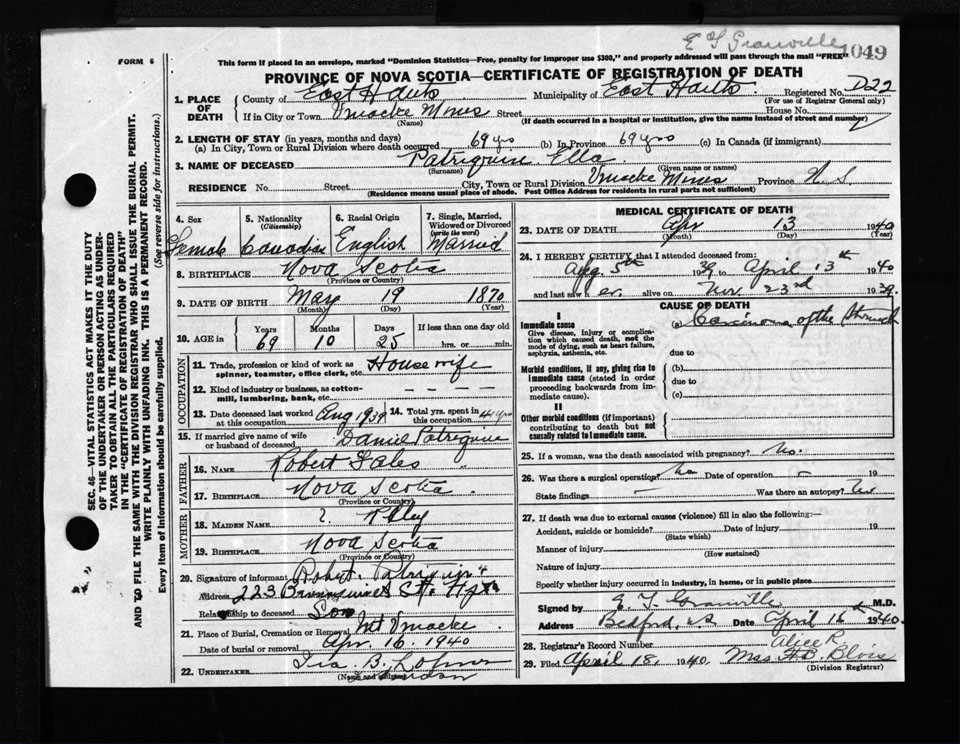 E T Granville 1049
FORM 6
This form if placed in an envelope, marked "Dominion Statistics—Free, penalty for improper use $300," and properly addressed will pass through the mail "FREE"
PROVINCE OF NOVA SCOTIA—CERTIFICATE OF REGISTRATION OF DEATH
1. PLACE OF DEATH County of East Hants Municipality of East Hants Registered No. D22
(For use of Registrar General only)
If in City or Town Mines Street House No.
(Name) (If death occurred in a hospital or institution, give the name instead of street and number)
2. LENGTH OF STAY (in years, months and days)
(a) In City, Town or Rural Division where death occurred 69 yrs (b) In Province 69 yrs (c) In Canada (if immigrant)
3. NAME OF DECEASED Patriquin Ella
(Surname) (Given name or names)
RESIDENCE No. Street City, Town or Rural Division Mines Province N.S.
(Residence means usual place of abode. Post Office Address for residents in rural parts not sufficient)
4. Sex 5. Nationality (Citizenship) 6. Racial Origin 7. Single, Married, Widowed or Divorced (write the word)
Female Canadian English Married
8. BIRTHPLACE Nova Scotia
(Province or Country)
9. DATE OF BIRTH May 19 1870
(Month) (Day) (Year)
10. AGE in Years Months Days If less than one day old
69 10 25 hrs. or min.
OCCUPATION
11. Trade, profession or kind of work as spinner, teamster, office clerk, etc. Housewife
12. Kind of industry or business, as cotton-mill, lumbering, bank, etc. – – – – –
13. Date deceased last worked at this occupation Aug 1939 14. Total yrs. spent in this occupation 44 yrs
15. If married give name of wife or husband of deceased Daniel Patriquin
FATHER
16. NAME Robert Fales "
17. BIRTHPLACE Nova Scotia
(Province or Country)
MOTHER
18. MAIDEN NAME
19. BIRTHPLACE Nova Scotia
(Province or Country)
20. Signature of informant Robert Patriquin
Address 223 Brunswick St. Hfx
Relationship to deceased Son
21. Place of Burial, Cremation or Removal Mt Uniacke
Date of burial or removal Apr. 16 1940
22. UNDERTAKER Ira B.
(Name and address)
MEDICAL CERTIFICATE OF DEATH
23. DATE OF DEATH Apr 13 1940
(Month) (Day) (Year)
24. I HEREBY CERTIFY that I attended deceased from:
Aug 5th 1939 to April 13th 1940
and last saw her alive on Nov. 23rd 1939.
CAUSE OF DEATH
I
Immediate cause (a) Carcinoma of the Stomach
Give disease, injury or complication which caused death, not the mode of dying, such as heart failure, asphyxia, asthenia, etc.
due to
Morbid conditions, if any, giving rise to immediate cause (stated in order proceeding backwards from immediate cause).
(b)
due to
(c)
II
Other morbid conditions (if important) contributing to death but not causally related to immediate cause.
25. If a woman, was the death associated with pregnancy? No.
26. Was there a surgical operation? No Date of operation – 19
State findings – Was there an autopsy? No
27. If death was due to external causes (violence) fill in also the following:—
Accident, suicide or homicide? Date of injury 19
(State which)
Manner of injury
(How sustained)
Nature of injury
Specify whether injury occurred in industry, in home, or in public place
Signed by E. T. Granville M.D.
Address Bedford, NS Date April 16th 1940
28. Registrar's Record Number Alice R
29. Filed April 18, 1940 Mrs H B Blois
(Division Registrar)
SEC. 46—VITAL STATISTICS ACT MAKES IT THE DUTY
OF THE UNDERTAKER OR PERSON ACTING AS UNDER-
TAKER TO OBTAIN ALL THE PARTICULARS REQUIRED
IN THE "CERTIFICATE OF REGISTRATION OF DEATH"
AND TO FILE THE SAME WITH THE DIVISION REGISTRAR WHO SHALL ISSUE THE BURIAL PERMIT.
WRITE PLAINLY WITH UNFADING INK. THIS IS A PERMANENT RECORD.
Every item of Information should be carefully supplied. (See reverse side for instructions.)